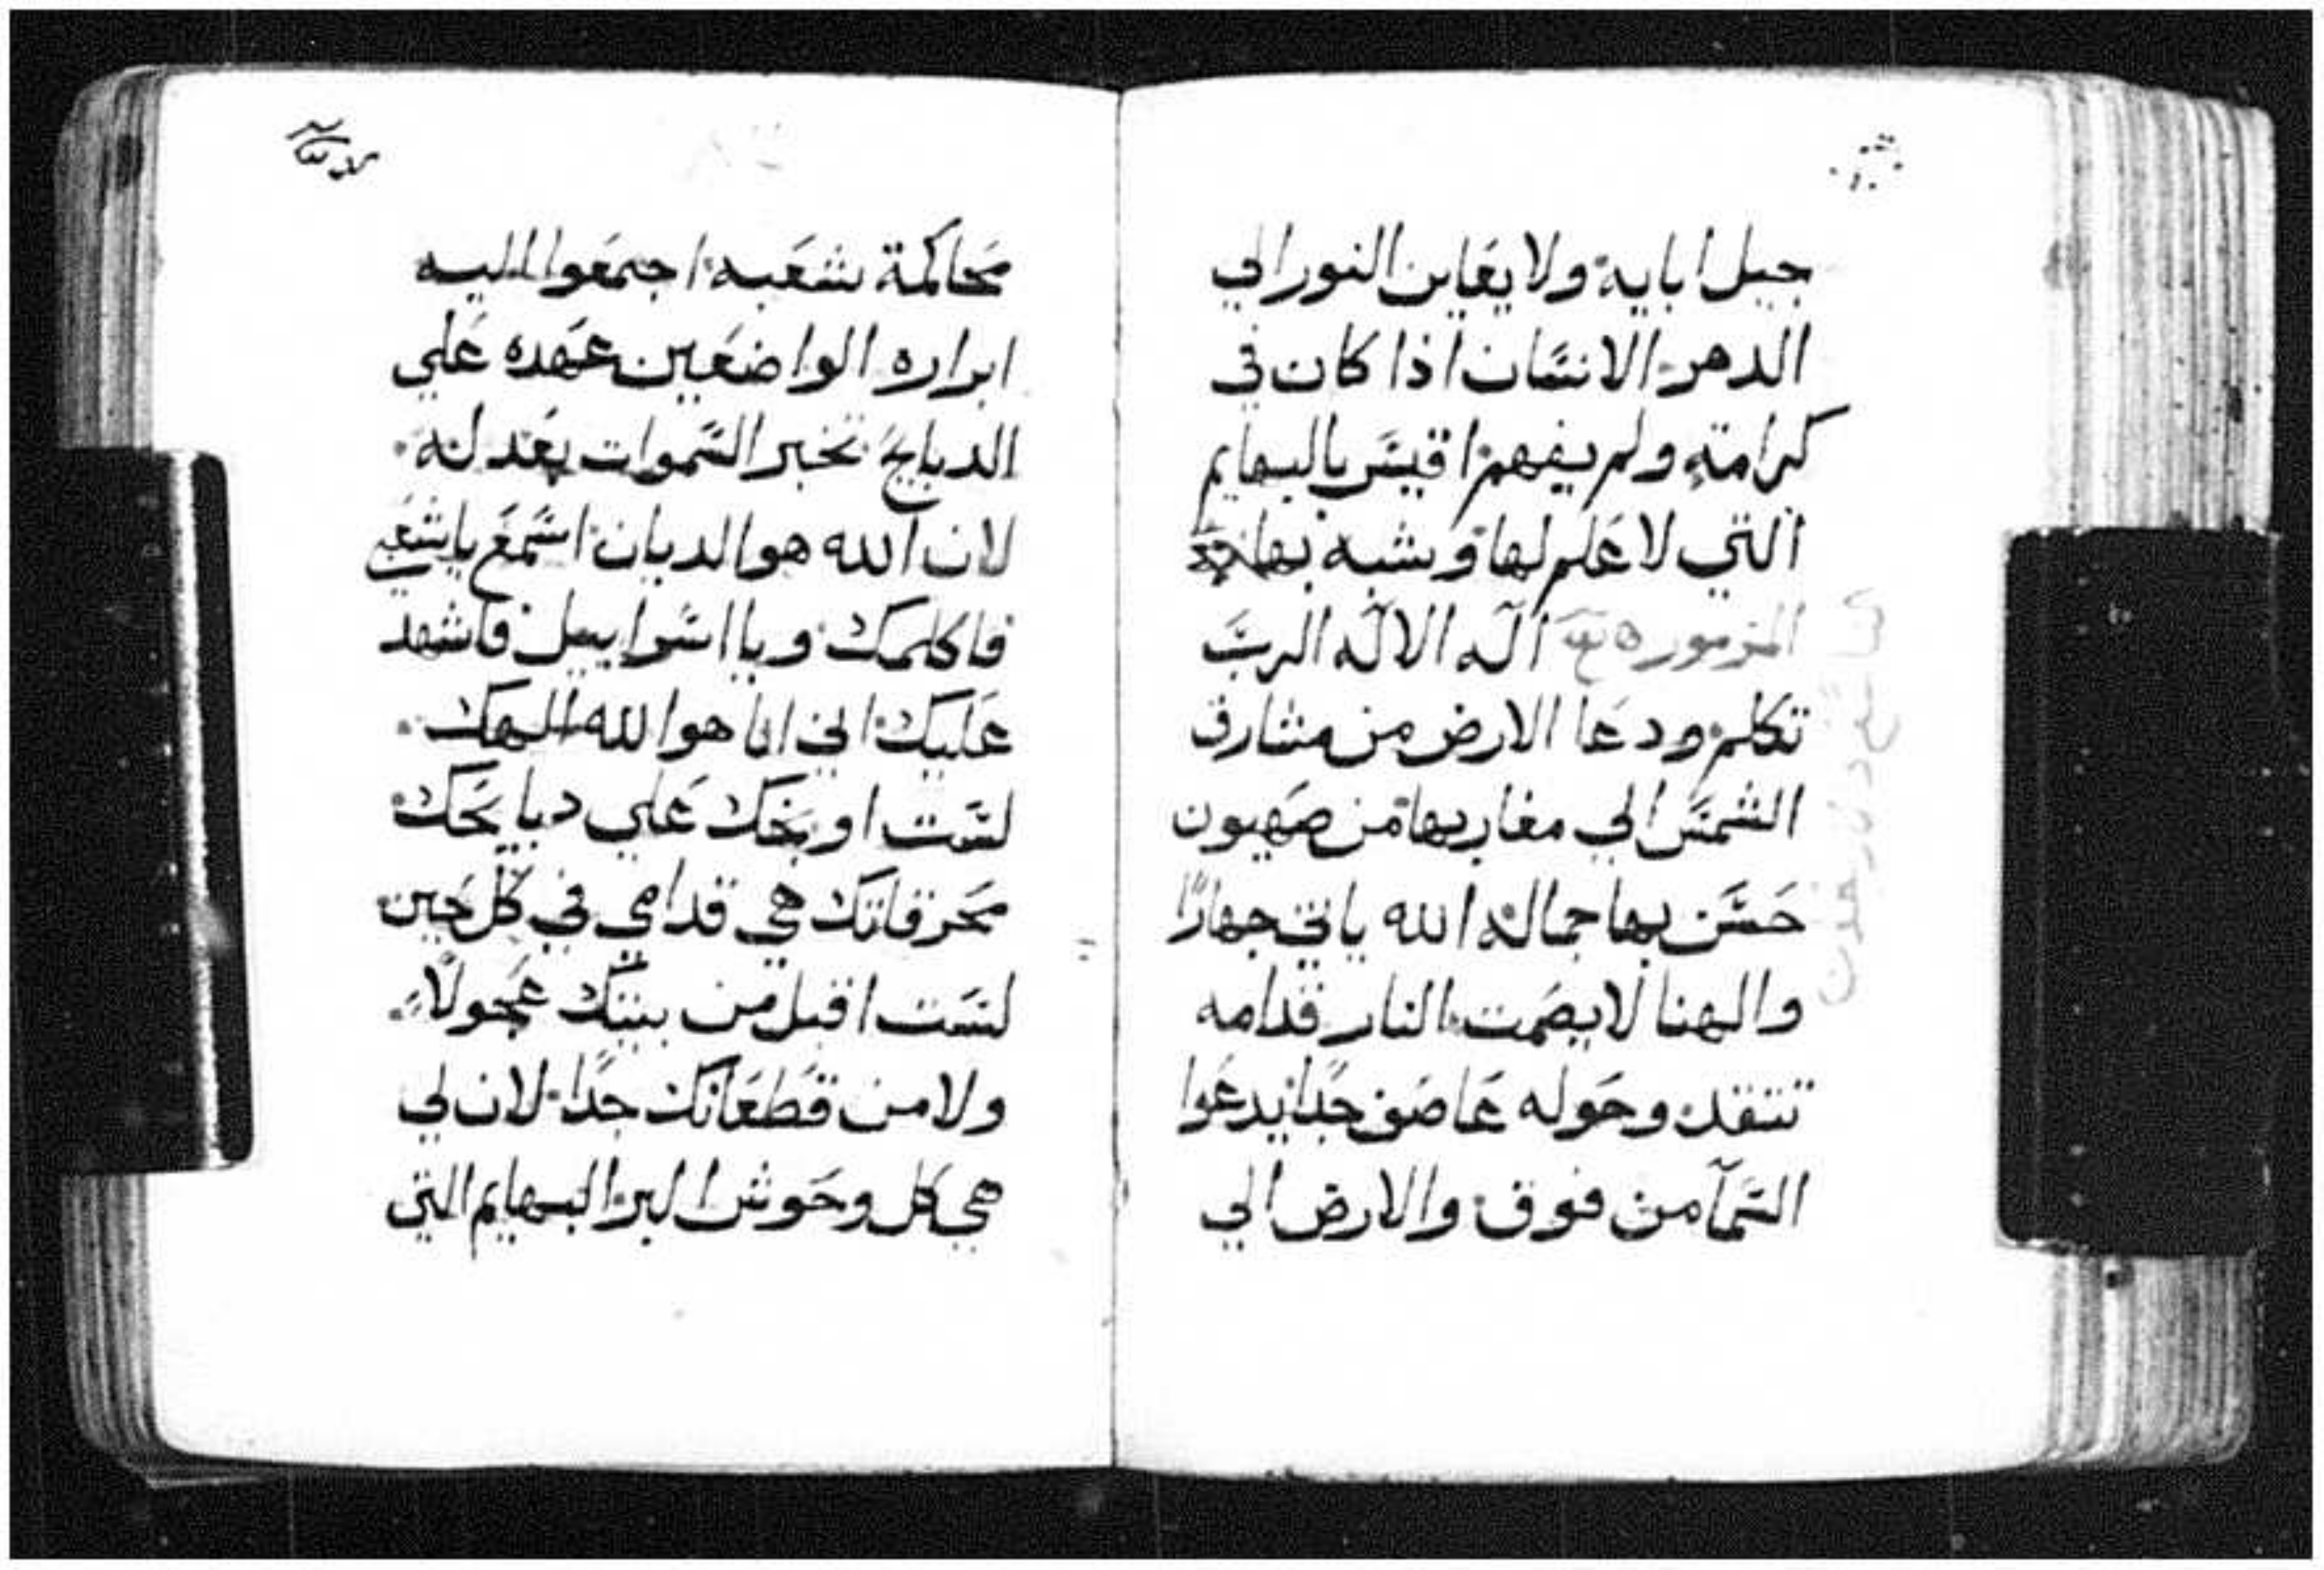 جيل ابايه ولا يعاين النور الي
الدهر الانسان اذا كان في
كرامته ولم يفهم اقيس بالبهايم
التي لا علم لها وشبه بها
المزمور اله الالهه الرب
تكلم ودعا الارض من مشارق
الشمس الي مغاربها من صهيون
حسن بها جماله الله ياتي جهارًا
والهنا لا يصمت النار قدامه
تتقد وحوله عاصف جدا يدعوا
السمآ من فوق والارض الي
محاكمة شعبه اجمعوا اليه
ابراره الواضعين عهده علي
الدبايح تخبر السموات بعدله
لان الله هو الديان اسمع يا شعبي
فاكلمك ويا اسراييل فاشهد
عليك اني انا هو الله الهك
لست اوبخك علي دبايحك
محرقاتك هي قدامي في كل حين
لست اقبل من بيتك عجولًا
ولا من قطعانك جدا لان لي
هي كل وحوش البر البهايم التي